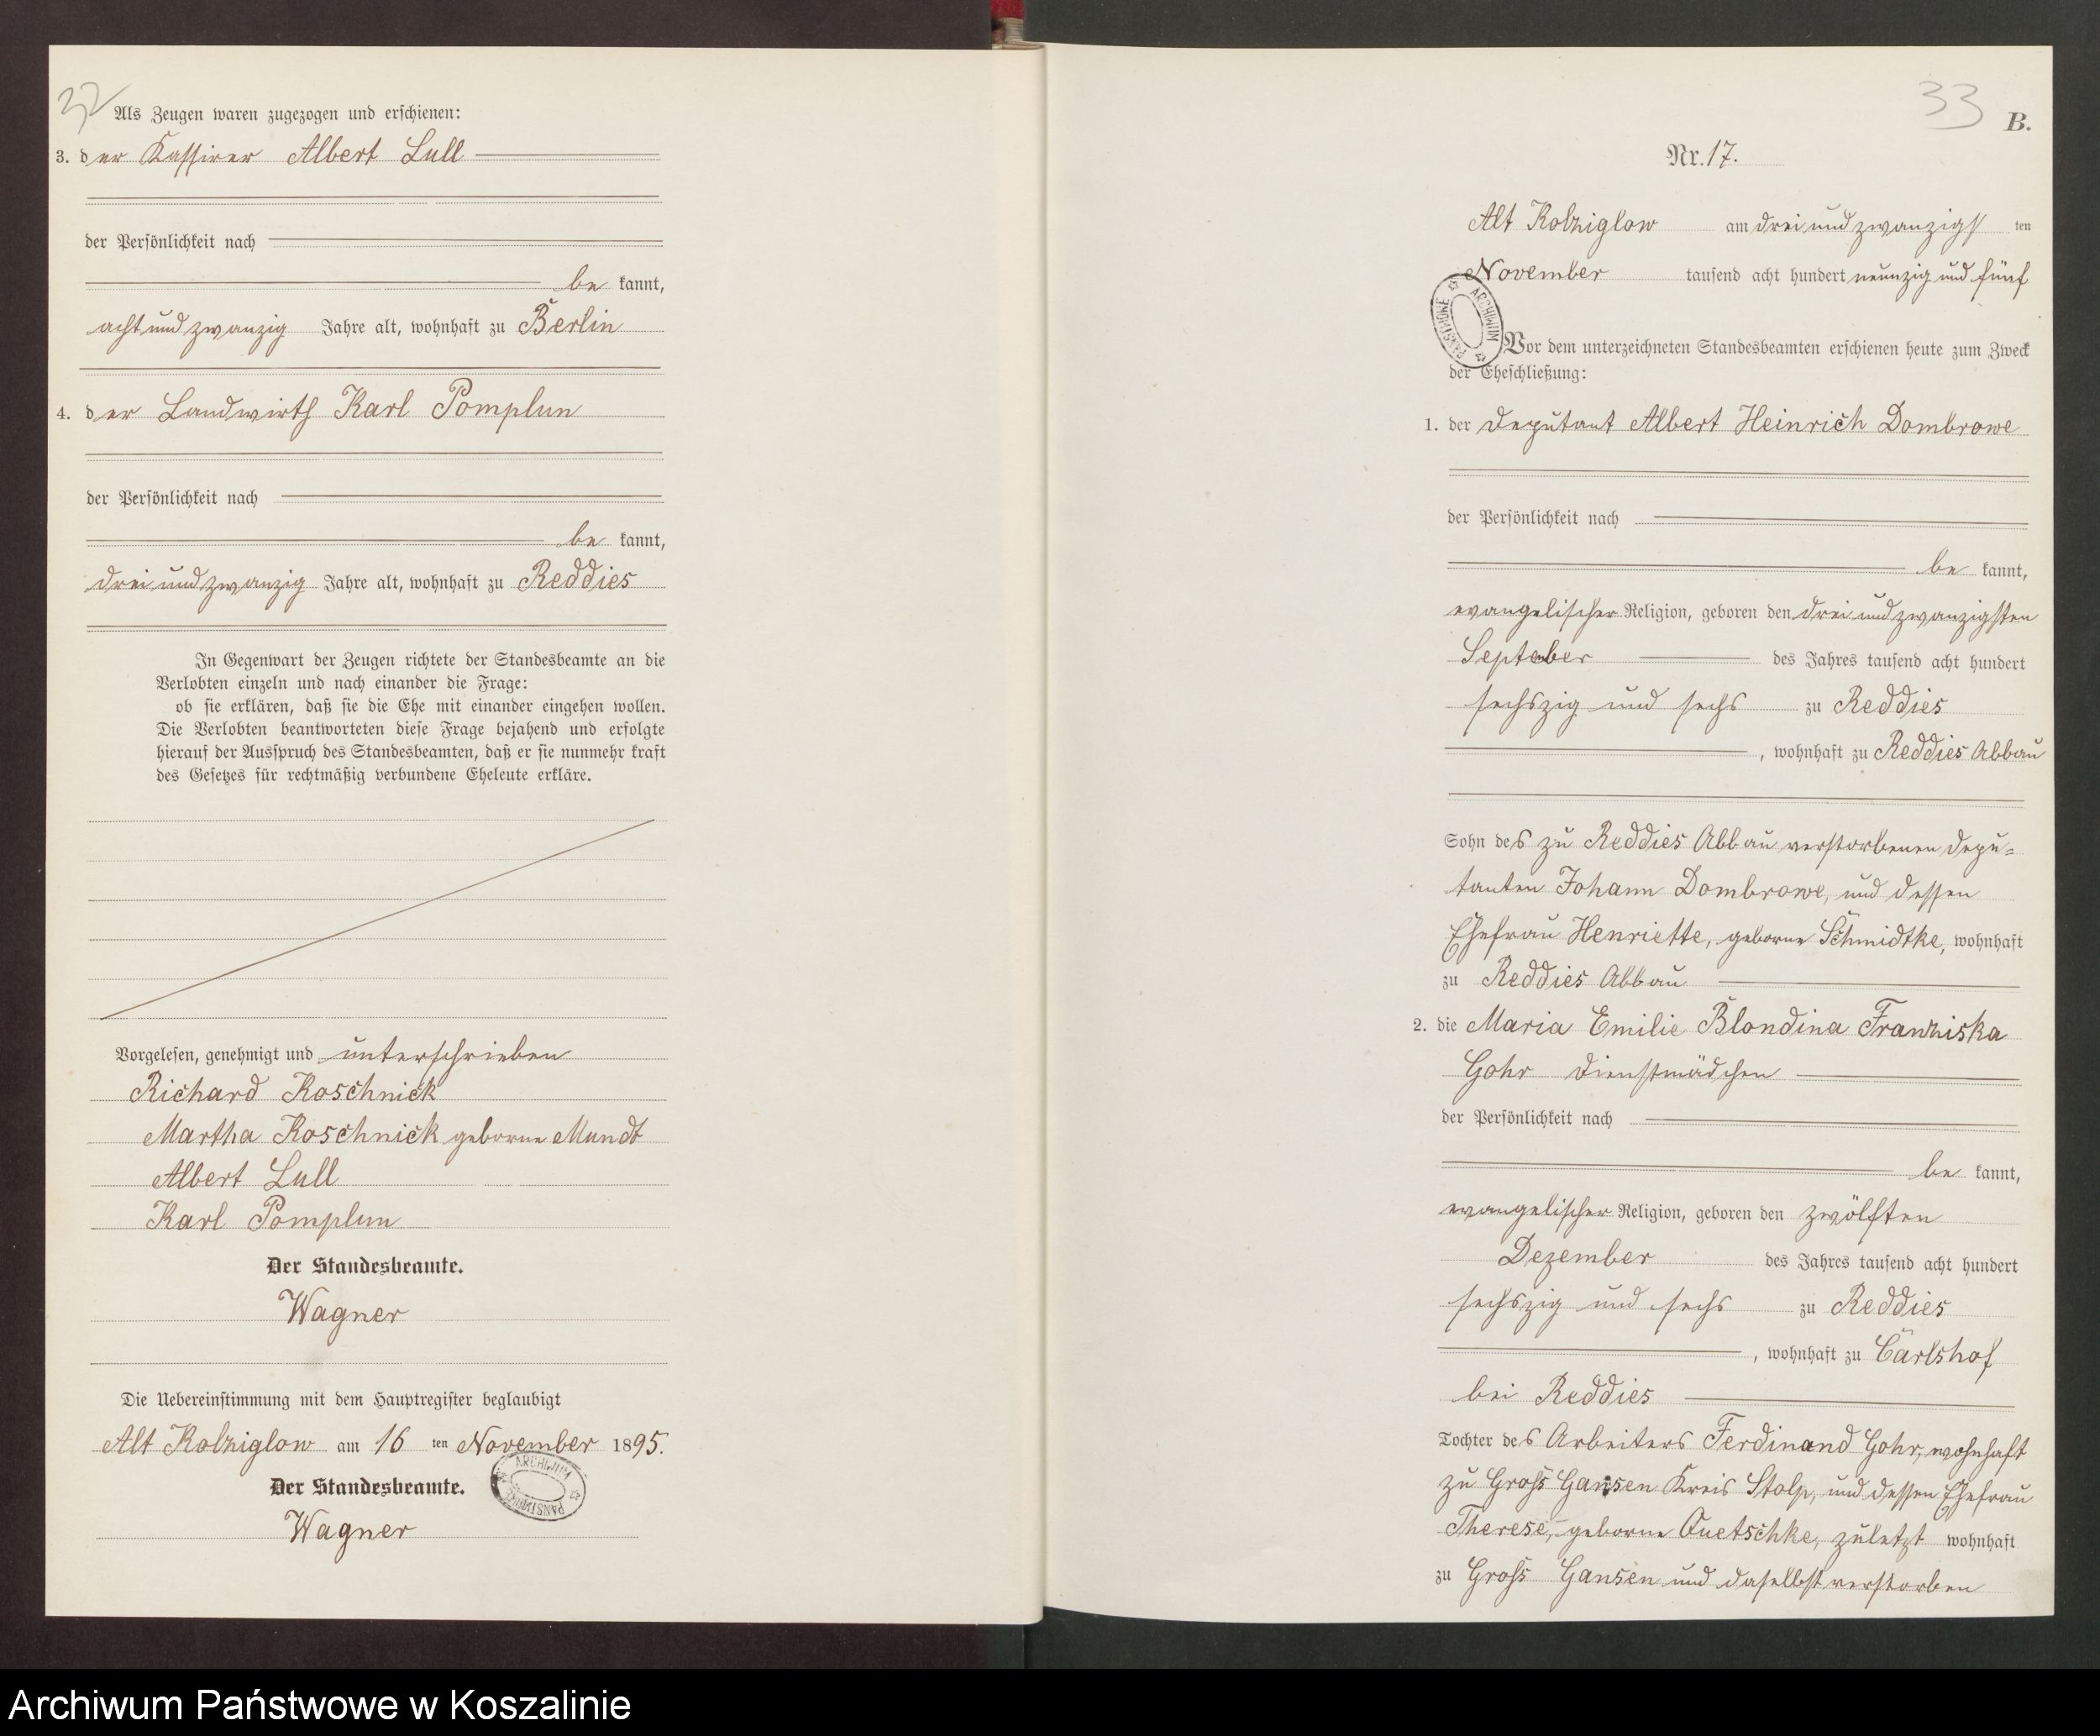 32
Als Zeugen waren zugezogen und erschienen:
3. der Kassirer Albert Lull
der Persönlichkeit nach
be kannt,
acht und zwanzig Jahre alt, wohnhaft zu Berlin
4. der Landwirth Karl Pomplun
der Persönlichkeit nach
be kannt,
drei und zwanzig Jahre alt, wohnhaft zu Reddies
In Gegenwart der Zeugen richtete der Standesbeamte an die
Verlobten einzeln und nach einander die Frage:
ob sie erklären, daß sie die Ehe mit einander eingehen wollen.
Die Verlobten beantworteten diese Frage bejahend und erfolgte
hierauf der Ausspruch des Standesbeamten, daß er sie nunmehr kraft
des Gesetzes für rechtmäßig verbundene Eheleute erkläre.
Vorgelesen, genehmigt und unterschrieben
Richard Koschnick
Martha Koschnick geborne Mundt
Albert Lull
Karl Pomplun
Der Standesbeamte.
Wagner
Die Uebereinstimmung mit dem Hauptregister beglaubigt
Alt Kolziglow am 16 ten November 1895.
Der Standesbeamte.
Wagner
ARCHIWUM PAŃSTWOWE
33
B.
Nr. 17.
Alt Kolziglow am drei und zwanzigs ten
November tausend acht hundert neunzig und fünf
ARCHIWUM PAŃSTWOWE
Vor dem unterzeichneten Standesbeamten erschienen heute zum Zweck
der Eheschließung:
1. der Deputant Albert Heinrich Dombrowe
der Persönlichkeit nach
be kannt,
evangelischer Religion, geboren den drei und zwanzigsten
September des Jahres tausend acht hundert
sechszig und sechs zu Reddies
, wohnhaft zu Reddies Abbau
Sohn des zu Reddies Abbau verstorbenen Depu-
tanten Johann Dombrowe, und dessen
Ehefrau Henriette, geborne Schmidtke, wohnhaft
zu Reddies Abbau
2. die Maria Emilie Blondina Franziska
Gohr Dienstmädchen
der Persönlichkeit nach
be kannt,
evangelischer Religion, geboren den zwölften
Dezember des Jahres tausend acht hundert
sechszig und sechs zu Reddies
, wohnhaft zu Carlshof
bei Reddies
Tochter des Arbeiters Ferdinand Gohr, wohnhaft
zu Groß Gansen Kreis Stolp, und dessen Ehefrau
Therese, geborne Quetschke, zuletzt wohnhaft
zu Groß Gansen und daselbst verstorben
Archiwum Państwowe w Koszalinie